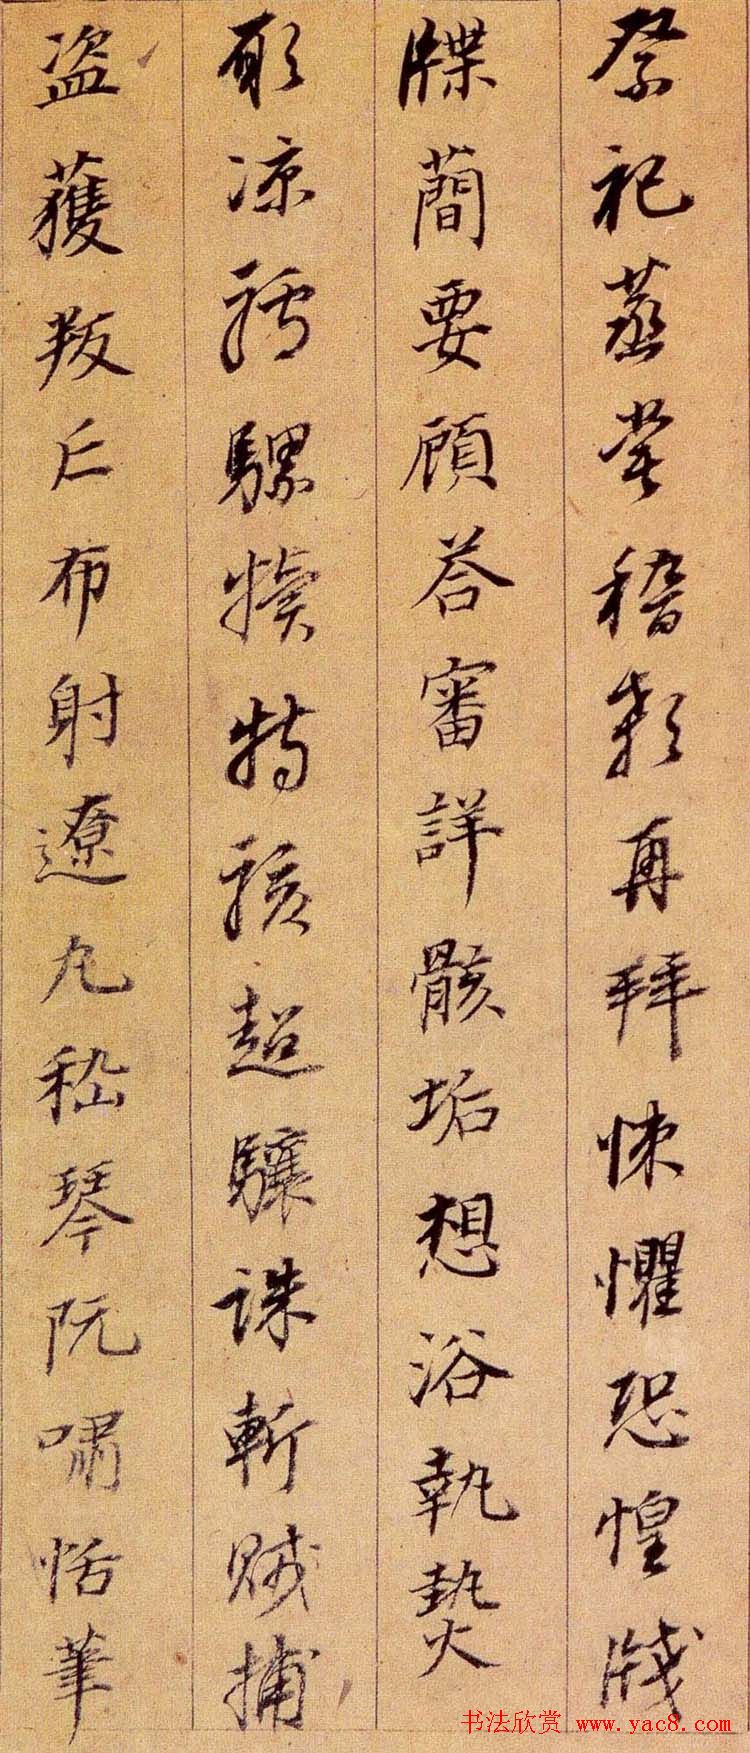 祭祀蒸嘗稽顙再拜悚懼恐惶牋
牒簡要顧答審詳骸垢想浴執熱
願涼驢騾犢特駭超驤誅斬賊捕
盜獲叛亡布射遼丸嵇琴阮嘯恬筆
书法欣赏 www.yac8.com